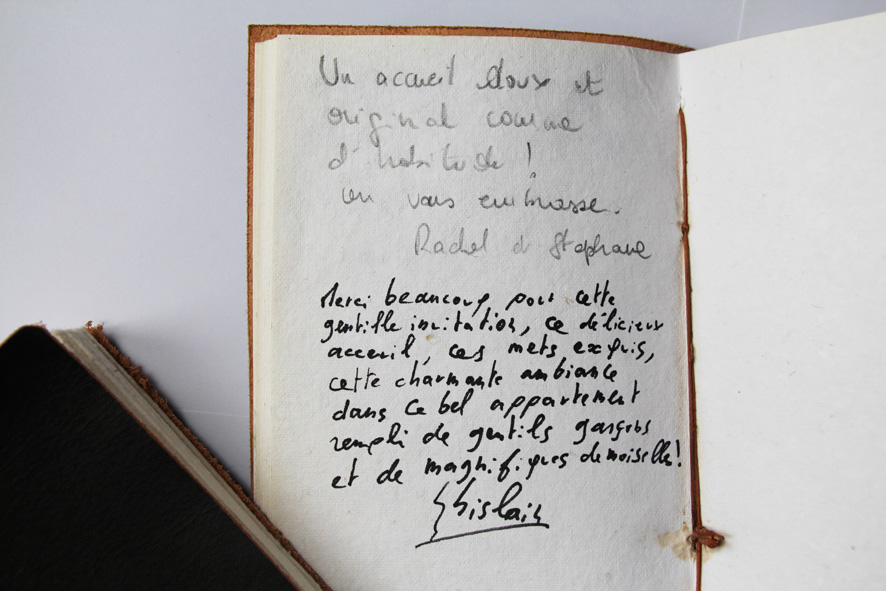 Un accueil doux et
original comme
d'habitude !
on vous embrasse.
Rachel et Stephane
Merci beaucoup pour cette
gentille invitation, ce délicieux
acceuil, ces mets exquis,
cette charmante ambiance
dans ce bel appartement
rempli de gentils garçons
et de magnifiques demoiselle !
Ghislain